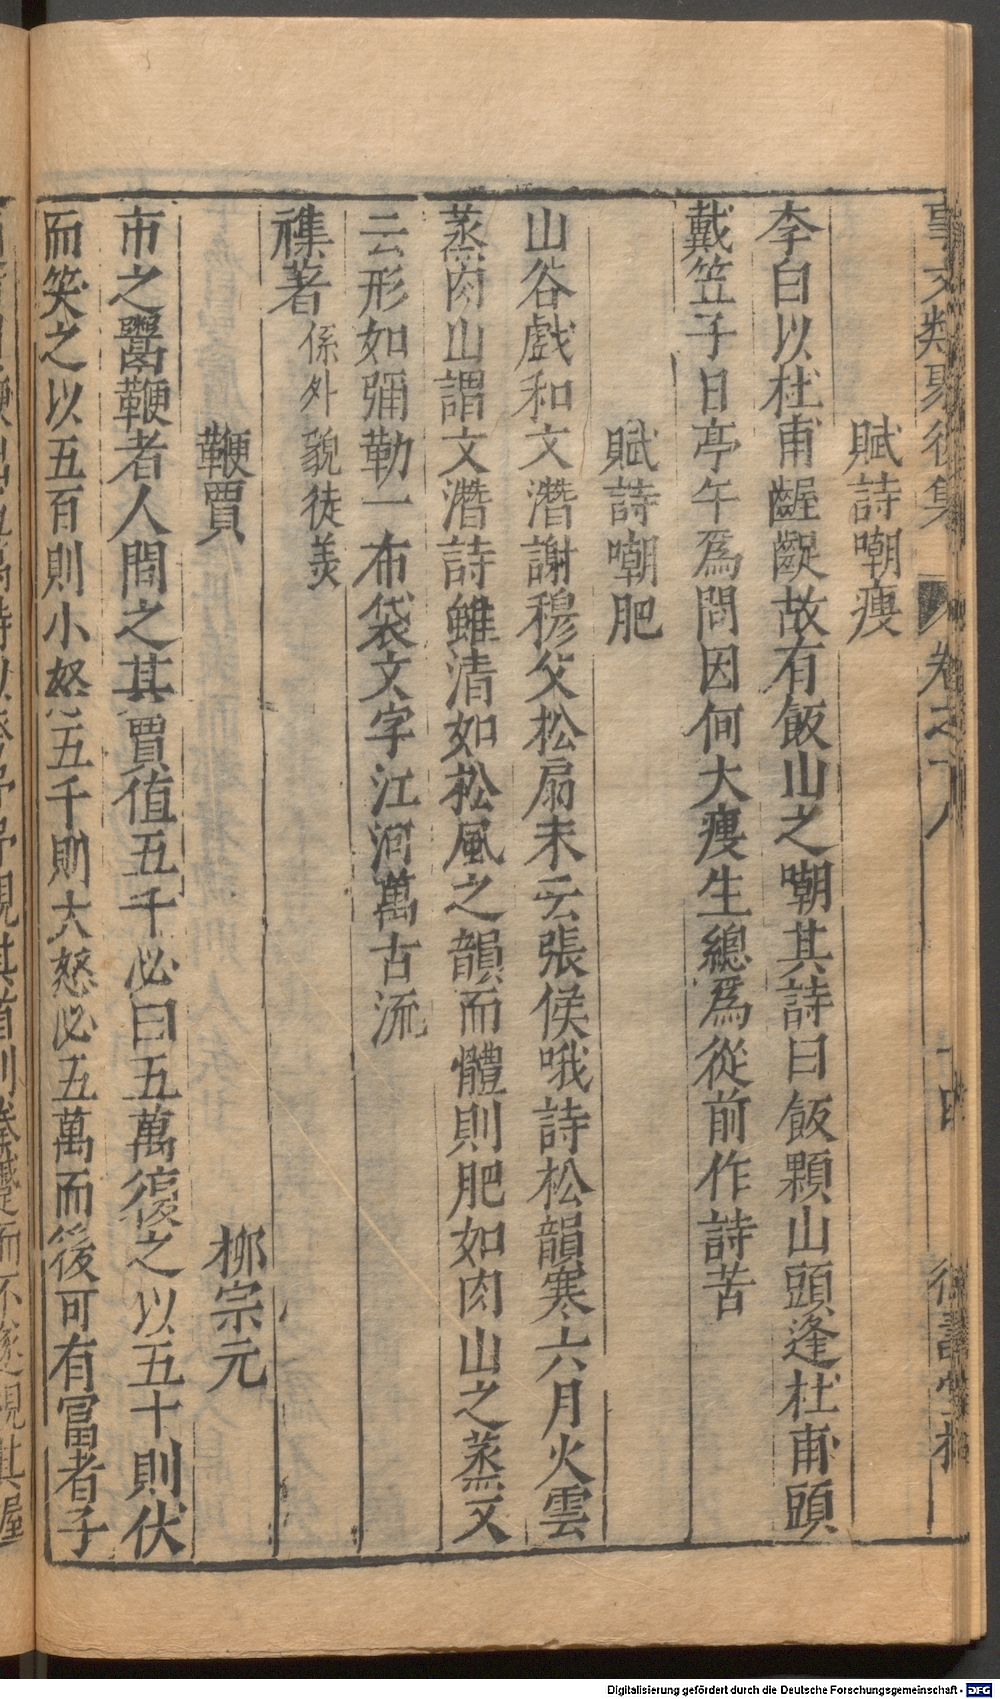 事文類聚後集 卷之十八
賦詩嘲瘦
李白以杜甫齷齪故有飯山之嘲其詩曰飯顆山頭逢杜甫頭
戴笠子日亭午爲問因何大瘦生總爲從前作詩苦
賦詩嘲肥
山谷戲和文潛謝穆父松扇末云張侯哦詩松韻寒六月火雲
蒸肉山謂文潛詩雖清如松風之韻而體則肥如肉山之蒸又
云形如彌勒一布袋文字江河萬古流
襍著 係外貌徒美
鞭賈 柳宗元
市之鬻鞭者人問之其賈值五千必曰五萬復之以五十則伏
而笑之以五百則小怒五千則大怒必五萬而後可有富者子
Digitalisierung gefördert durch die Deutsche Forschungsgemeinschaft - DFG